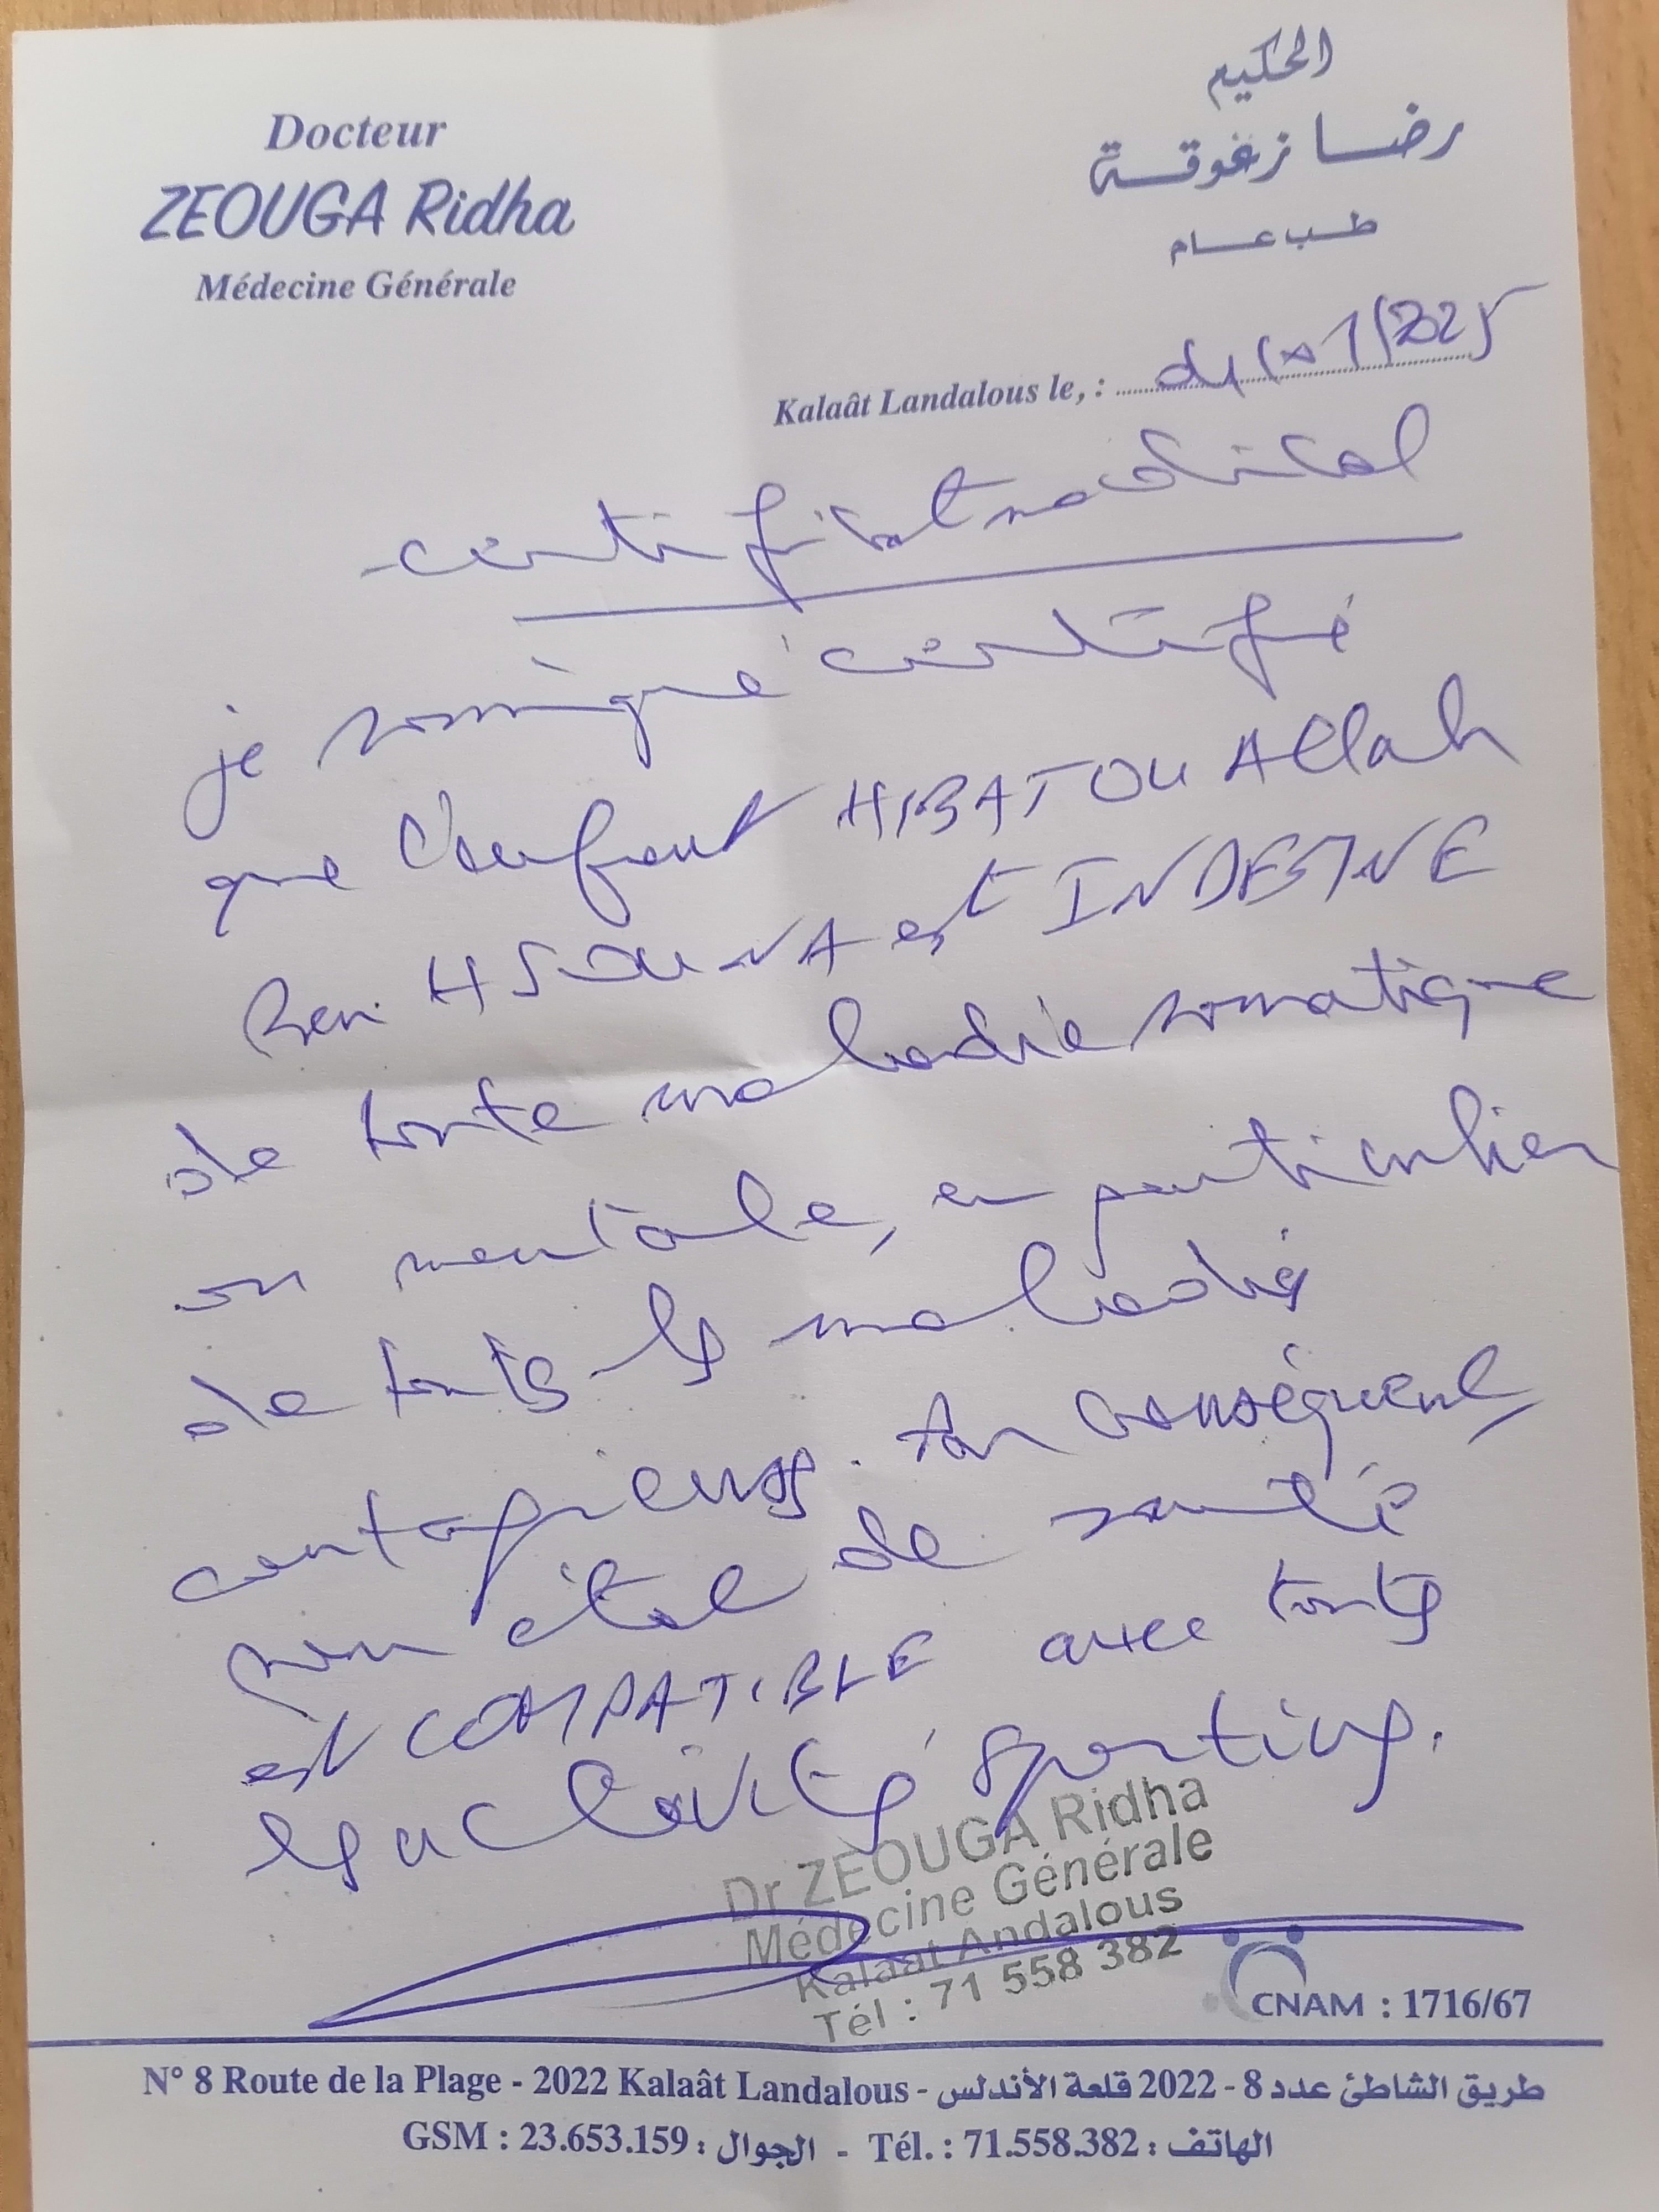 Docteur
ZEOUGA Ridha
Médecine Générale
الحكيم
رضا زغوقة
طب عام
Kalaât Landalous le, :
certificat médical
je soussigné certifie
que l'enfant HIBATOU Allah
Ben HSOUNA est INDEMNE
de toute maladie somatique
ou mentale, en particulier
de toutes les maladies
contagieuses. Par conséquent,
son état de santé
est COMPATIBLE avec toutes
les activités sportives.
Dr ZEOUGA Ridha
Médecine Générale
Kalaat Andalous
Tél : 71 558 382
CNAM : 1716/67
N° 8 Route de la Plage - 2022 Kalaât Landalous - طريق الشاطئ عدد 8 - 2022 قلعة الأندلس
GSM : 23.653.159 : الجوال - Tél. : 71.558.382 : الهاتف